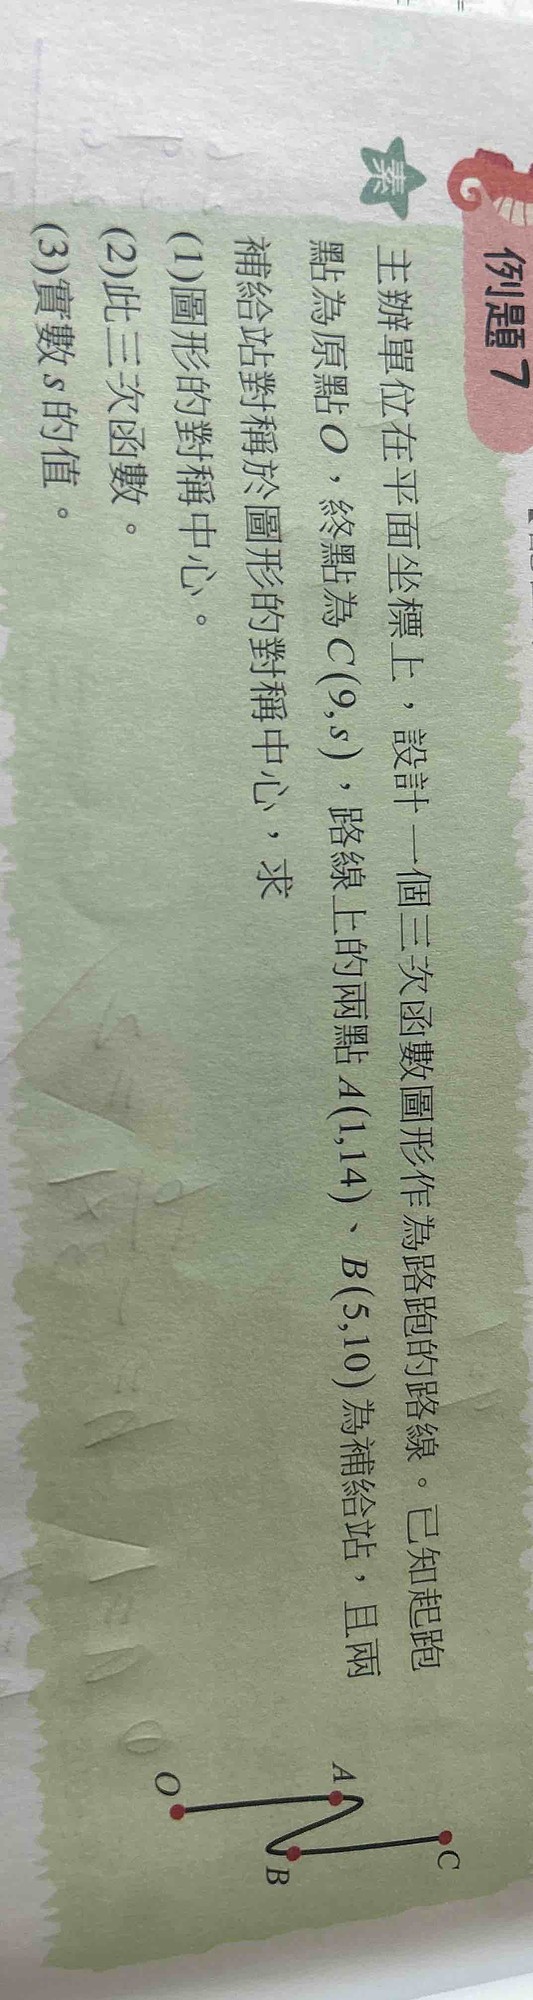 例題7
素
主辦單位在平面坐標上，設計一個三次函數圖形作為路跑的路線。已知起跑
點為原點O，終點為C(9,s)，路線上的兩點A(1,14)、B(5,10)為補給站，且兩
補給站對稱於圖形的對稱中心，求
(1)圖形的對稱中心。
(2)此三次函數。
(3)實數s的值。
C
A
B
O